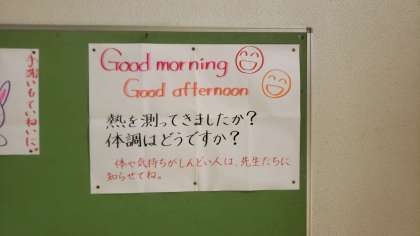 手洗いもていねいに。
Good morning
Good afternoon
熱を測ってきましたか?
体調はどうですか?
体や気持ちがしんどい人は、先生たちに
知らせてね。